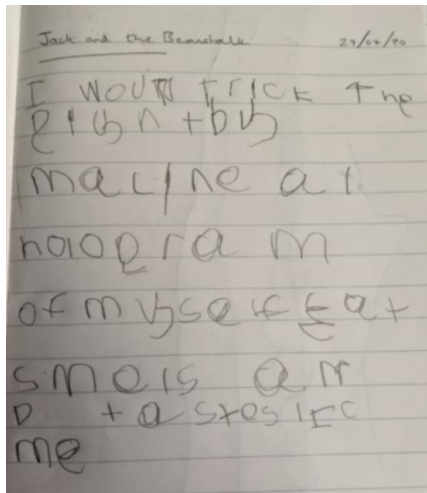 Jack and the Beanstalk
I would trick the
gignt by
macine a
hologram
of myself tat
smels an
D tastes lic
me